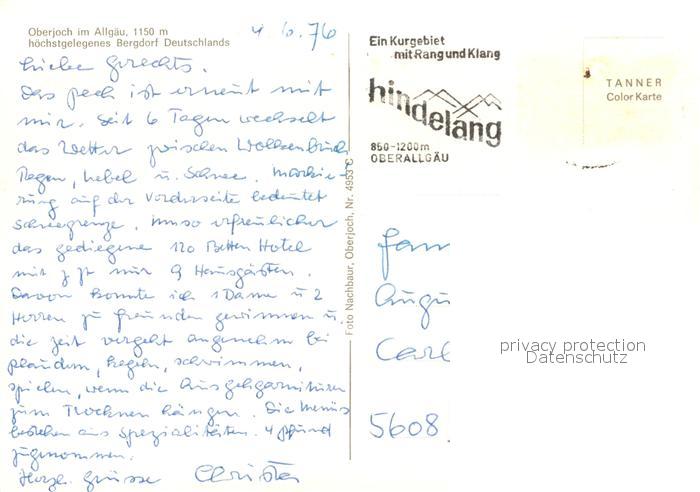 Oberjoch im Allgäu, 1150 m
höchstgelegenes Bergdorf Deutschlands
4.6.76
Liebe Gerechts.
Das Pech ist erneut mit
mir. Seit 6 Tagen wechselt
das Wetter zwischen Wolkenbruch
Regen, Nebel u. Schnee. Markie-
rung auf der Vorderseite bedeutet
Schneegrenze. Umso erfreulicher
das gediegene 120 Betten Hotel
mit z Zt nur 9 Hausgästen.
Davon konnte ich 1 Dame u 2
Herren zu Freunden gewinnen u.
die Zeit vergeht angenehm bei
plaudern, kegeln, schwimmen,
spielen, wenn die Ausgehgarnituren
zum Trocknen hängen. Die Menüs
bestehen aus Spezialitäten. 4 Pfund
zugenommen.
Herzl. Grüsse Christa
Foto Nachbaur, Oberjoch, Nr. 4953 C
Ein Kurgebiet
mit Rang und Klang
hindelang
850-1200m
OBERALLGÄU
TANNER
Color Karte
Fam
Augu
Carl
5608
privacy protection
Datenschutz